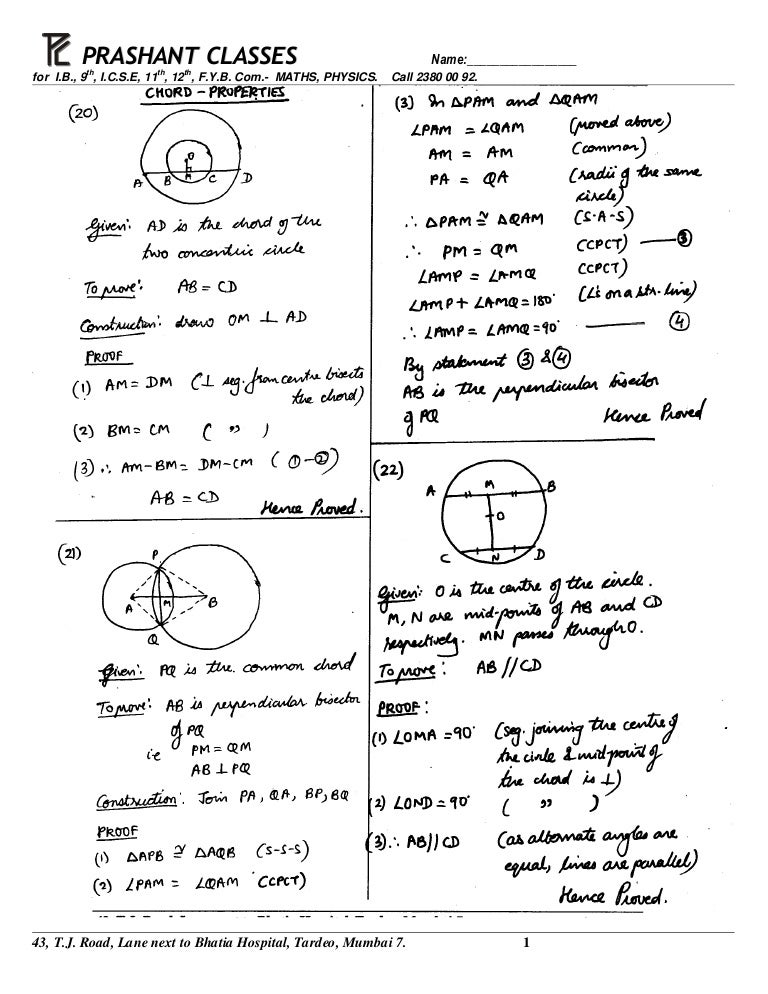 PRASHANT CLASSES
Name:________________
for I.B., 9th, I.C.S.E, 11th, 12th, F.Y.B. Com.- MATHS, PHYSICS. Call 2380 00 92.
CHORD - PROPERTIES
(20)
O
A B M C D
Given: AD is the chord of the
two concentric circle
To prove: AB = CD
Construction: draw OM ⊥ AD
PROOF
(1) AM = DM (⊥ seg. from centre bisects
the chord)
(2) BM = CM ( " )
(3) ∴ AM-BM = DM-CM ( ①-②)
AB = CD
Hence Proved.
(21)
P
A M B
Q
Given: PQ is the common chord
To prove: AB is perpendicular bisector
of PQ
ie PM = QM
AB ⊥ PQ
Construction: Join PA, QA, BP, BQ
PROOF
(1) △APB ≅ △AQB (S-S-S)
(2) ∠PAM = ∠QAM CCPCT)
(3) In △PAM and △QAM
∠PAM = ∠QAM (proved above)
AM = AM (common)
PA = QA (radii of the same
circle)
∴ △PAM ≅ △QAM (S-A-S)
∴ PM = QM CCPCT) — ③
∠AMP = ∠AMQ CCPCT)
∠AMP + ∠AMQ = 180° (∠s on a str. line)
∴ ∠AMP = ∠AMQ = 90° — ④
By statement ③ & ④
AB is the perpendicular bisector
of PQ Hence Proved
(22)
A M B
O
C N D
Given: O is the centre of the circle.
M, N are mid-points of AB and CD
respectively. MN passes through O.
To prove: AB // CD
PROOF:
(1) ∠OMA = 90° (seg. joining the centre of
the circle & midpoint of
the chord is ⊥)
(2) ∠OND = 90° ( " )
(3) ∴ AB // CD (as alternate angles are
equal, lines are parallel)
Hence Proved.
43, T.J. Road, Lane next to Bhatia Hospital, Tardeo, Mumbai 7. 1